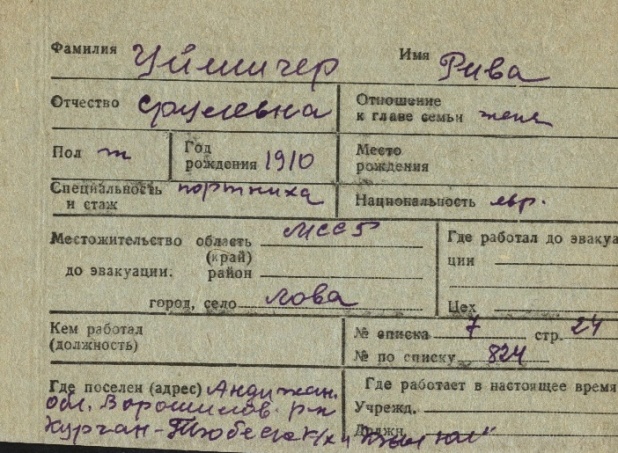 Фамилия Уймичер Имя Рива
Отчество Срулевна Отношение
к главе семьи жена
Пол ж Год
рождения 1910 Место
рождения
Специальность портниха
и стаж Национальность евр.
Местожительство область МССР
(край)
до эвакуации. район
город, село
Где работал до эвакуа
ции
Цех
Кем работал
(должность)
№ списка 7 стр. 24
№ по списку 824
Где поселен (адрес) Андижан.
обл. Ворошилов. р-н
Курган-Тюбе к/х
Где работает в настоящее время
Учрежд.
Должн.